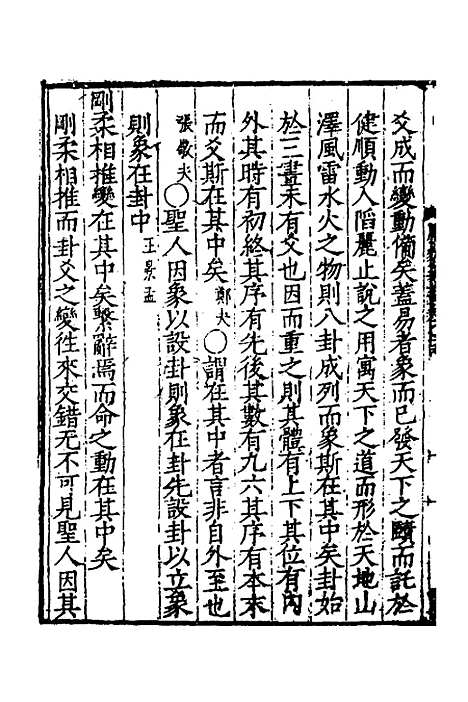 爻成而變動備矣蓋易者象而已發天下之賾而託於
健順動入䧟麗止說之用寓天下之道而形於天地山
澤風雷水火之物則八卦成列而象斯在其中矣卦始
於三畫未有爻也因而重之則其體有上下其位有內
外其時有初終其序有先後其數有九六其序有本末
而爻斯在其中矣 鄭夬 ○謂在其中者言非自外至也
張敬夫 ○聖人因象以設卦則象在卦先設卦以立象
則象在卦中 王景孟
剛柔相推變在其中矣繫辭焉而命之動在其中矣
剛柔相推而卦爻之變徃來交錯无不可見聖人因其